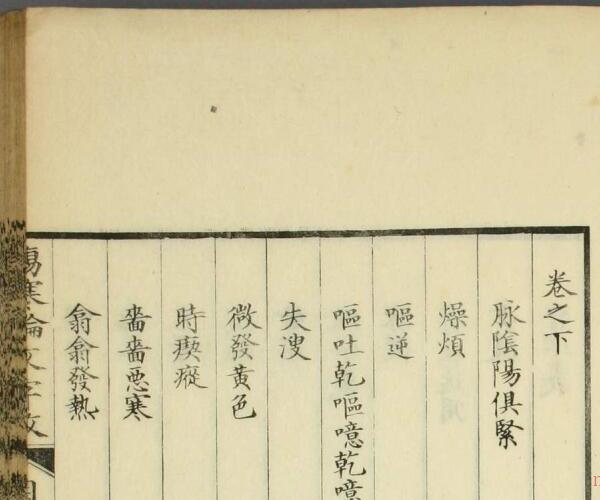 卷之下
脉陰陽俱緊
燥煩
嘔逆
嘔吐乾嘔噫乾噫
失溲
微發黃色
時瘈瘲
嗇嗇惡寒
翕翕發熱
傷寒論文字攷